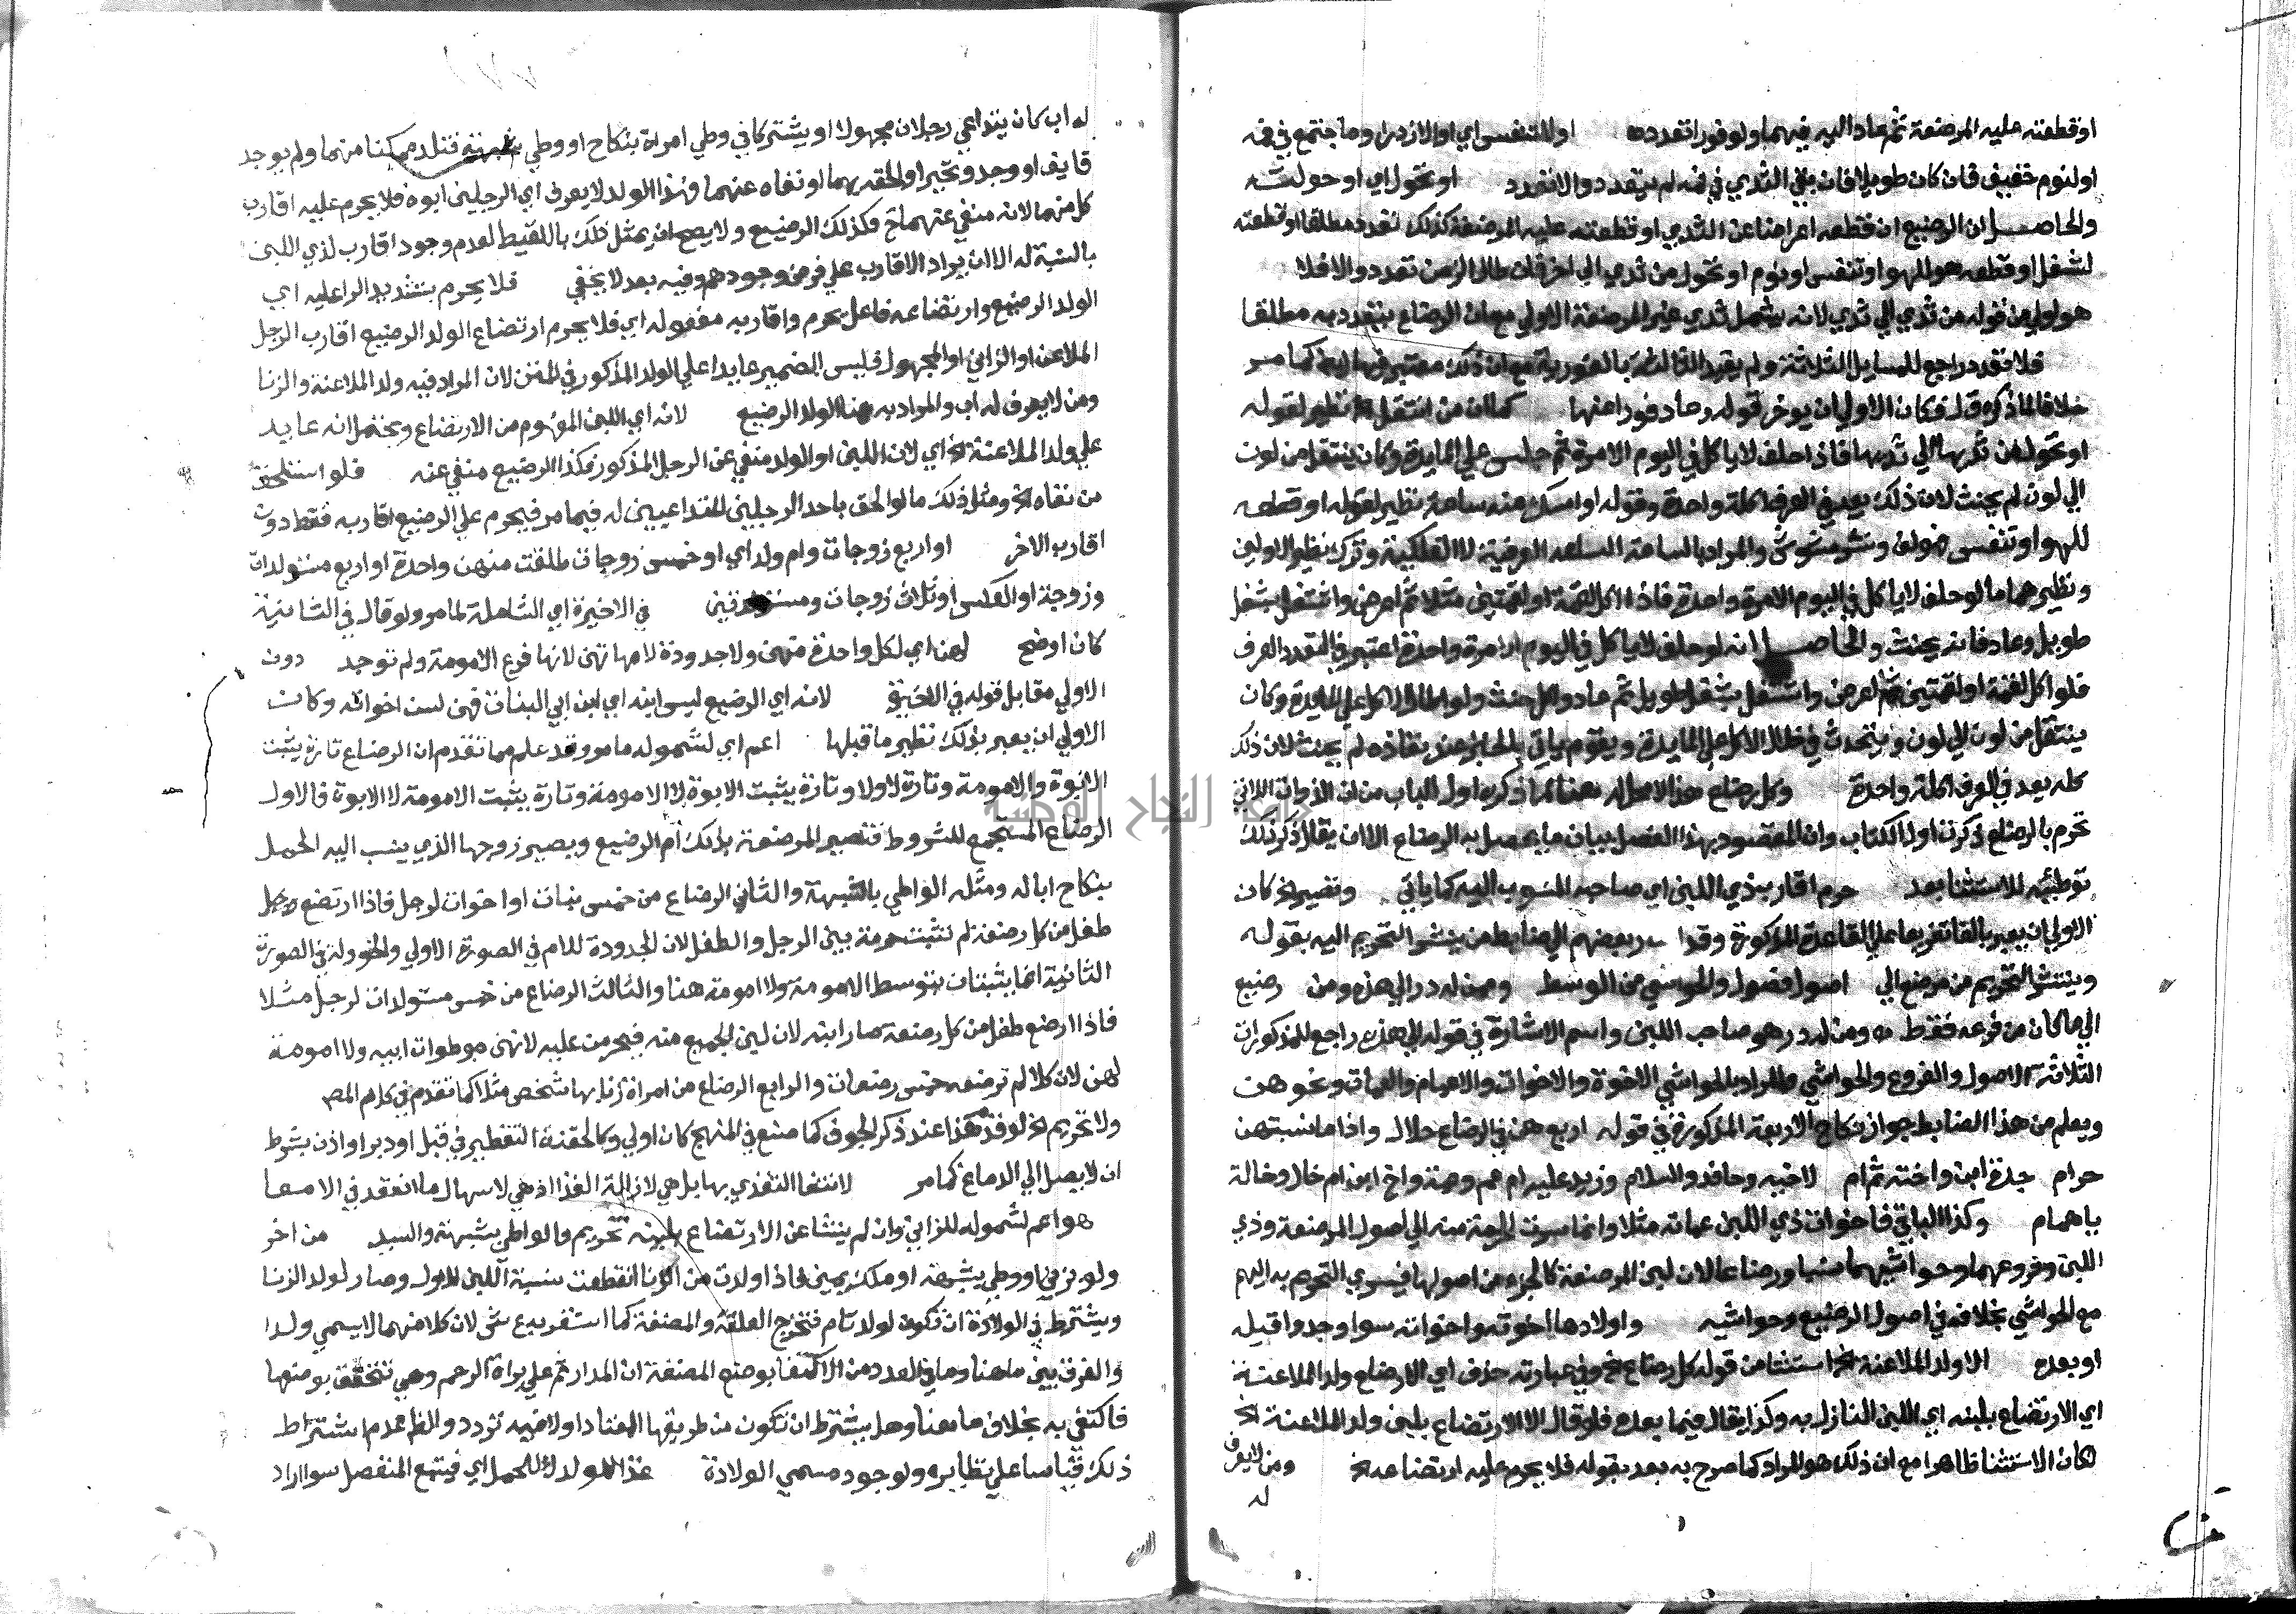 او قطعته عليه المرضعة ثم عاد اليه فيهما ولو فورا تعدد ه او لا لتنفس اي او الازدراد وما جتمع في فمه
او لنوم خفيف فان كان طويلا فان بقي الثدي في فمه لم يتعدد والا تعدد او تحول اي او حولته
والحاصل ان الرضيع ان قطعه اعراضا عن الثدي او قطعته عليه المرضعة كذلك تعدد مطلقا او قطعته
لشغل او قطعه هو للهوا و تنفس او نوم او تحول من ثدي الي اخر فان طال الزمن تعدد والا فلا
هو اولي من قوله من ثدي الي ثدي لانه يشمل ثدي غير المرضعة الاولي مع ان الرضاع يتعدد به مطلقا
فلا تعدد راجع للمسايل الثلاثة ولم يقيد الثالثة بالفورية مع ان ذلك معتبر فيها ايضا كما مر
خلافا لما ذكره ق ل فكان الاولي ان يوخر قوله وعاد فورا عنها كما ان من انتقل الخ نظير لقوله
او تحول من ثديها الي ثديها فاذا حلف لا ياكل في اليوم الا مرة ثم جلس علي المايدة وكان ينتقل من لون
الي لون لم يحنث لان ذلك يعد في العرف اكلة واحدة وقوله او امسك عنه ساعة نظير لقوله او قطعه
للهو او تنفس فهو لف ونشر مشوش والمراد بالساعة الساعة العرفية لا الفلكية وترك نظير الاولين
ونظيرهما ما لو حلف لا ياكل في اليوم الا مرة واحدة فاذا اكل لقمة او لقمتين مثلا ثم اعرض واشتغل بشغل
طويل وعاد فانه يحنث والحاصل انه لو حلف لا ياكل في اليوم الا مرة واحدة اعتبر في التعدد العرف
فلو اكل لقمة او لقمتين ثم اعرض واشتغل بشغل طويل ثم عاد واكل حنث ولو اطال الاكل علي المايدة وكان
ينتقل من لون الي لون ويتحدث في خلال الاكل علي المايدة ويقوم وياتي بالخبز عند نفاذه لم يحنث لان ذلك
كله يعد في العرف اكلة واحدة وكل رضاع هذا لا محل له هنا لما ذكره اول الباب من ان الذوات اللاتي
تحرم بالرضاع ذكرت اول الكتاب وان المقصود بهذا الفصل بيان ما يحصل به الرضاع الا ان يقال ذكر ذلك
توطئة للاستثنا بعد حرم اقارب ذي اللبن اي صاحبه المنسوب اليه كما ياتي وتصير الخ كان
الاولي ان يعبر بالفا تفريعا علي القاعدة المذكورة وقد بعضهم لضابط من ينشر التحريم اليه بقوله
وينتشر التحريم من مرضع الي اصول فصول والحواشي من الوسط وممن له در الي هذه ومن رضيع
الي ما كان من فرعه فقط ه ومن له در هو صاحب اللبن واسم الاشارة في قوله الي هذه راجع للمذكورات
الثلاثة الاصول والفروع والحواشي والمراد بالحواشي الاخوة والاخوات والاعمام والعمات ونحوهن
ويعلم من هذا الضابط جواز نكاح الاربعة المذكورة في قوله اربع هن في الرضاع حلال واذا ما نسبتهن
حرام جدة ابن واخته ثم ام لاخيه وحافد والسلام وزيد عليه ام عم وعمة واخ ابن ام خال وخالة
يا همام وكذا الباقي فاخوات ذي اللبن عماته مثلا وانما سرت الحرمة منه الي اصول المرضعة وذي
اللبن وفروعهما وحواشيهما نسبا ورضاعا لان لبن المرضعة كالجزء من اصولها فيسري التحريم به اليهم
مع الحواشي بخلافه في اصول الرضيع وحواشيه واولادها اخوته واخواته سوا وجد واقبله
او بعده الا ولد الملاعنة الخ استثنا من قوله كل رضاع الخ وفي عبارته حذف اي الا رضاع ولد الملاعنة
اي الارتضاع بلبنه اي اللبن النازل به وكذا يقال فيما بعده فلو قال الا الارتضاع بلبن ولد الملاعنة الخ
لكان الاستثنا ظاهرا مع ان ذلك هو المراد كما صرح به بعد بقوله فلا يحرم عليه ارتضاعه الخ ومن لا يعرف
له
له اب كان يتداعي رجلان مجهولا او يشتركا في وطي امراة بنكاح او وطي شبهة فتلد ممكنا منهما ولم يوجد
قايف او وجد وتحير او الحقه بهما او نفاه عنهما فهذا الولد لا يعرف اي الرجلين ابوه فلا يحرم عليه اقارب
كل منهما لانه منفي عنهما ح فكذلك الرضيع ولا يصح ان يمثل ذلك باللقيط لعدم وجود اقارب لذي اللبن
بالنسبة له الا ان يراد الاقارب علي فرض وجودهم وفيه بعد لا يخفي فلا يحرم بتشديد الرا عليه اي
الولد الرضيع وارتضاعه فاعل يحرم واقاربه مفعوله اي فلا يحرم ارتضاع الولد الرضيع اقارب الرجل
الملاعن او الزاني او المجهول فليس الضمير عايدا علي الولد المذكور في المتن لان المراد فيه ولد الملاعنة والزنا
ومن لا يعرف له اب والمراد به هنا الولد الرضيع لانه اي اللبن المفهوم من الارتضاع ويحتمل انه عايد
علي ولد الملاعنة الخ اي لان اللبن او الولد منفي عن الرجل المذكور فكذا الرضيع منفي عنه فلو استلحق
من نفاه الخ ومثل ذلك ما لو الحق باحد الرجلين المتداعيين له فيما مر فيحرم علي الرضيع اقاربه فقط دون
اقارب الاخر او اربع زوجات وام ولد اي او خمس زوجات طلقت منهن واحدة او اربع مستولدات
وزوجة او العكس او ثلاث زوجات ومستولدتين في الاخيرة اي الشاملة لما مر ولو قال في الثانية
كان اوضح لهن اي لكل واحدة منهن ولا جدودة لامهاتهن لانها فرع الامومة ولم توجد دون
الاولي مقابل قوله في الاخيرة لانه اي الرضيع ليس ابنه اي ابن ابي البنات فهن لسن اخواته وكان
الاولي ان يعبر بذلك نظير ما قبلها اعم اي لشموله ما مر وقد علم مما تقدم ان الرضاع تارة يثبت
الابوة والامومة وتارة لا ولا وتارة يثبت الابوة لا الامومة وتارة يثبت الامومة لا الابوة فالاول
الرضاع المستجمع للشروط فتصير المرضعة بذلك ام الرضيع ويصير زوجها الذي ينسب اليه الحمل
بنكاح ابا له ومثله الواطي بالشبهة والثاني الرضاع من خمس بنات او اخوات لرجل فاذا ارتضع
طفل من كل رضعة لم تثبت حرمة بين الرجل والطفل لان الجدودة للام في الصورة الاولي والخوولة في الصورة
الثانية انما يثبتان بتوسط الامومة ولا امومة هنا والثالث الرضاع من خمس مستولدات لرجل مثلا
فاذا ارضع طفل من كل رضعة صار ابنه لان لبن الجميع منه فيحرمن عليه لانهن موطوات ابيه ولا امومة
لهن لان كلا لم ترضعه خمس رضعات والرابع الرضاع من امراة زنا بها شخص مثلا كما تقدم في كلام المص
ولا تحريم الخ لو قدم هذا عند ذكر الجوف كما صنع في المنهج كان اولي وكالحقنة التقطير في قبل او دبر او اذن بشرط
ان لا يصل الي الدماغ كما مر لانتفا التغذي بها بل هي لازالة الغذا اذ هي لاسهال ما انعقد في الامعا
هو اعم لشموله للزاني وان لم ينشا عن الارتضاع بلبنه تحريم والواطي بشبهة والسيد من اخر
ولو بزني او وطي بشبهة او ملك يمين فاذا ولدت من الزنا انقطعت نسبة اللبن للاول وصار لولد الزنا
ويشترط في الولادة ان تكون لولد تام فتخرج العلقة والمضغة كما استقر به ع ش لان كلا منهما لا يسمي ولدا
والفرق بين ما هنا وما في العدد من الاكتفا بوضع المضغة ان المدار ثم علي براة الرحم وهي تتحقق بوضعها
فاكتفي به بخلاف ما هنا وهل يشترط ان تكون من طريقها المعتاد او لا فيه تردد والظ عدم اشتراط
ذلك قياسا علي نظايره ولوجود مسمي الولادة غذا للولد لا للحمل اي فيتبع المنفصل سوا اراد